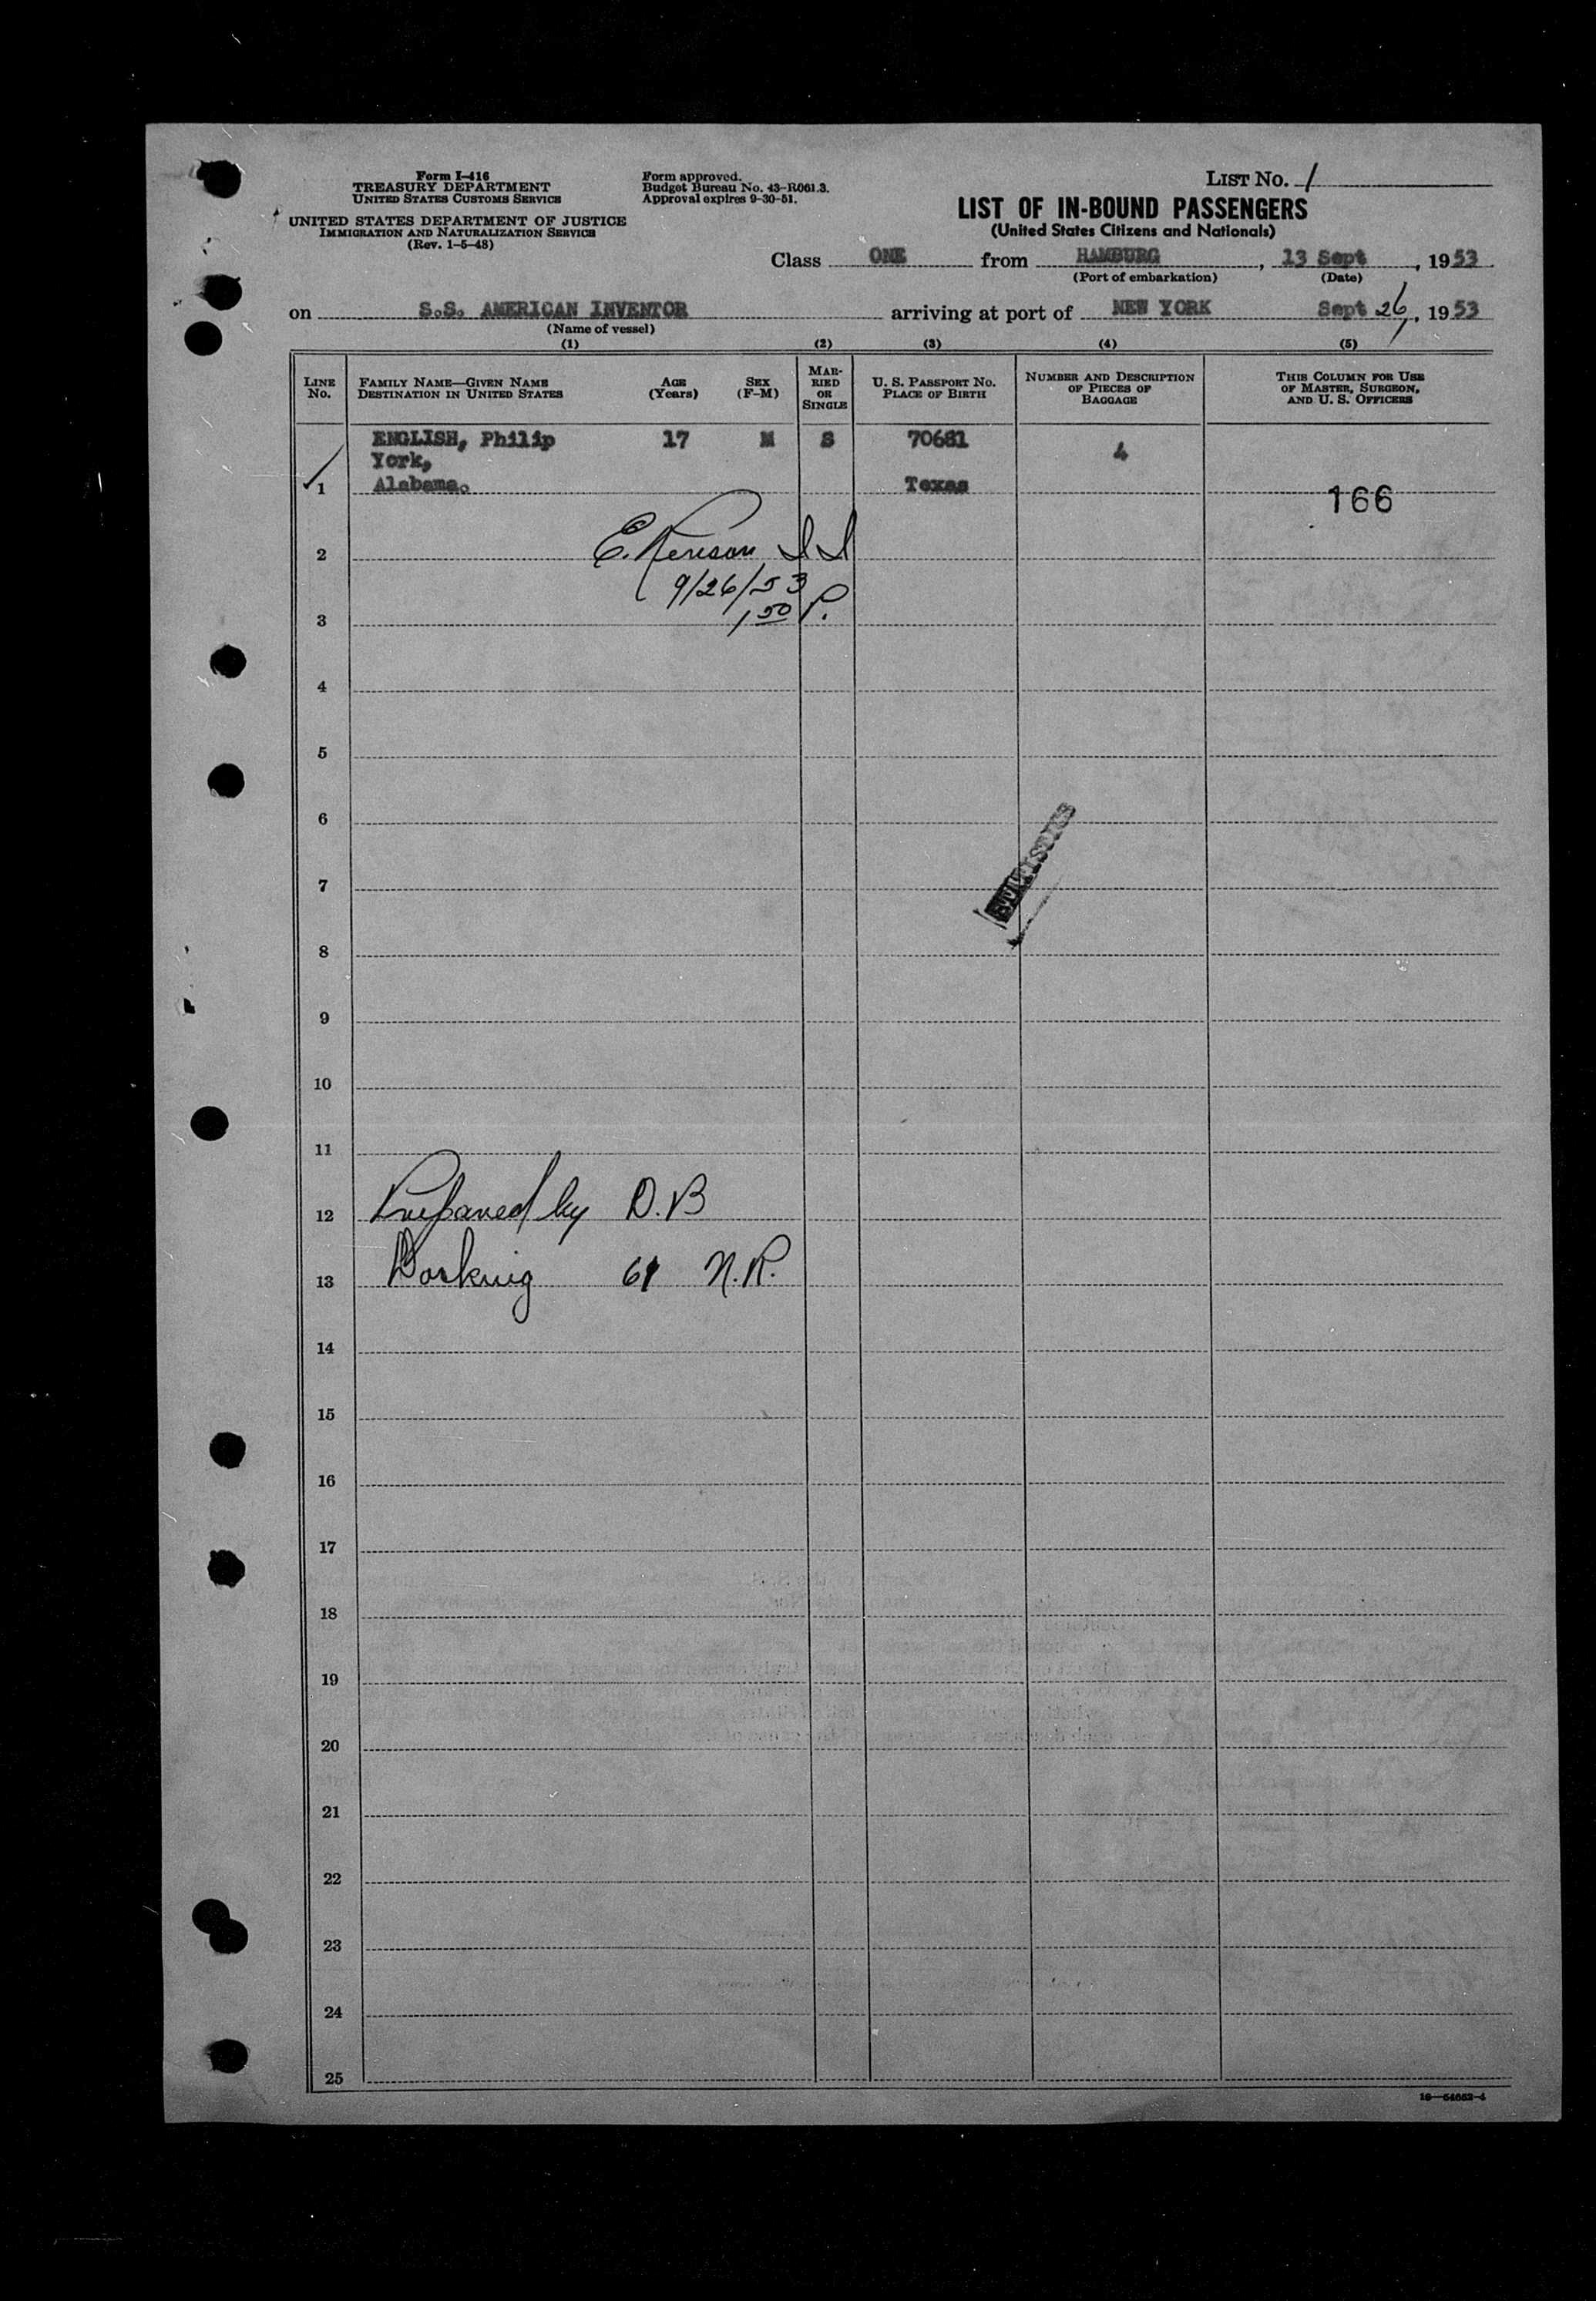 Form I-416
TREASURY DEPARTMENT
UNITED STATES CUSTOMS SERVICE
UNITED STATES DEPARTMENT OF JUSTICE
IMMIGRATION AND NATURALIZATION SERVICE
(Rev. 1-5-48)
Form approved.
Budget Bureau No. 43-R061.3.
Approval expires 9-30-51.
LIST NO. 1
LIST OF IN-BOUND PASSENGERS
(United States Citizens and Nationals)
Class ONE from HAMBURG, 13 Sept, 1953
(Port of embarkation) (Date)
on S.S. AMERICAN INVENTOR arriving at port of NEW YORK Sept 26, 1953
(Name of vessel)
(1) (2) (3) (4) (5)
LINE NO.
FAMILY NAME—GIVEN NAME
DESTINATION IN UNITED STATES
AGE (Years)
SEX (F-M)
MARRIED OR SINGLE
U. S. PASSPORT NO.
PLACE OF BIRTH
NUMBER AND DESCRIPTION OF PIECES OF BAGGAGE
THIS COLUMN FOR USE OF MASTER, SURGEON, AND U. S. OFFICERS
ENGLISH, Philip 17 M S 70681 4
York,
1 Alabama. Texas 166
2 E.
9/26/53
3 1 50 P.
4
5
6
7
8
9
10
11
12 Prepared by D.B
13 Docking 61 N.R.
14
15
16
17
18
19
20
21
22
23
24
25
16—54652-4